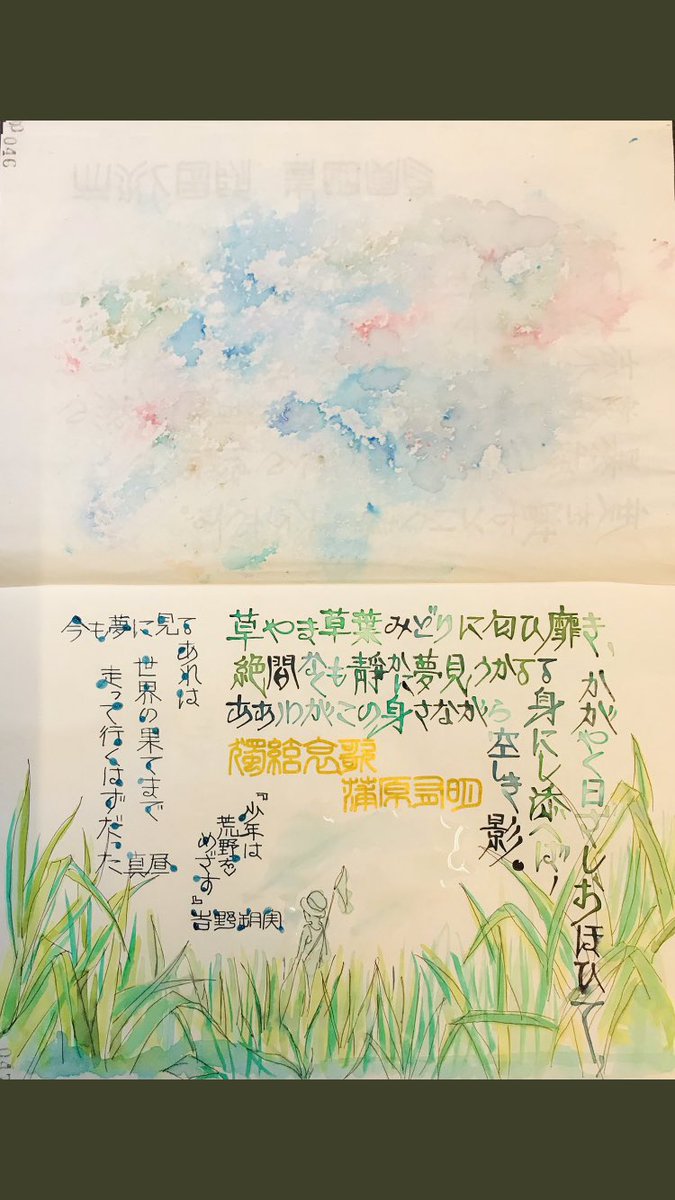 草やま草葉みどりに匂ひ靡き、かがやく日ざしおほひて、
絶間なくも靜かに夢見うかるる身にし添へば、
ああわがこの身さながら空しき影。
獨絃哀歌
蒲原有明
今も夢に見るあれは
世界の果てまで
走って行くはずだった
真昼
『少年は
荒野を
めざす』
吉野朔実
046